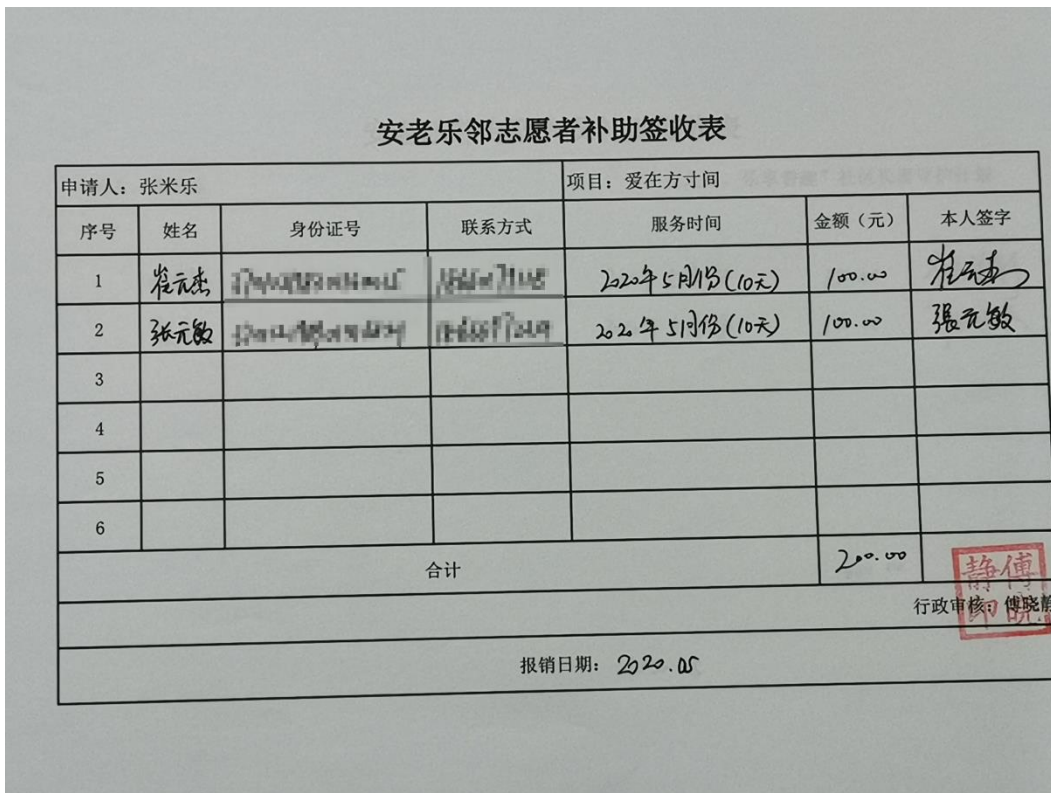 安老乐邻志愿者补助签收表
申请人：张米乐 项目：爱在方寸间
序号 姓名 身份证号 联系方式 服务时间 金额（元） 本人签字
1 崔元杰 2020年5月份(10天) 100.00 崔元杰
2 张元敏 2020年5月份(10天) 100.00 張元敏
3
4
5
6
合计 200.00
行政审核：傅晓静
报销日期：2020.05
傅晓静印